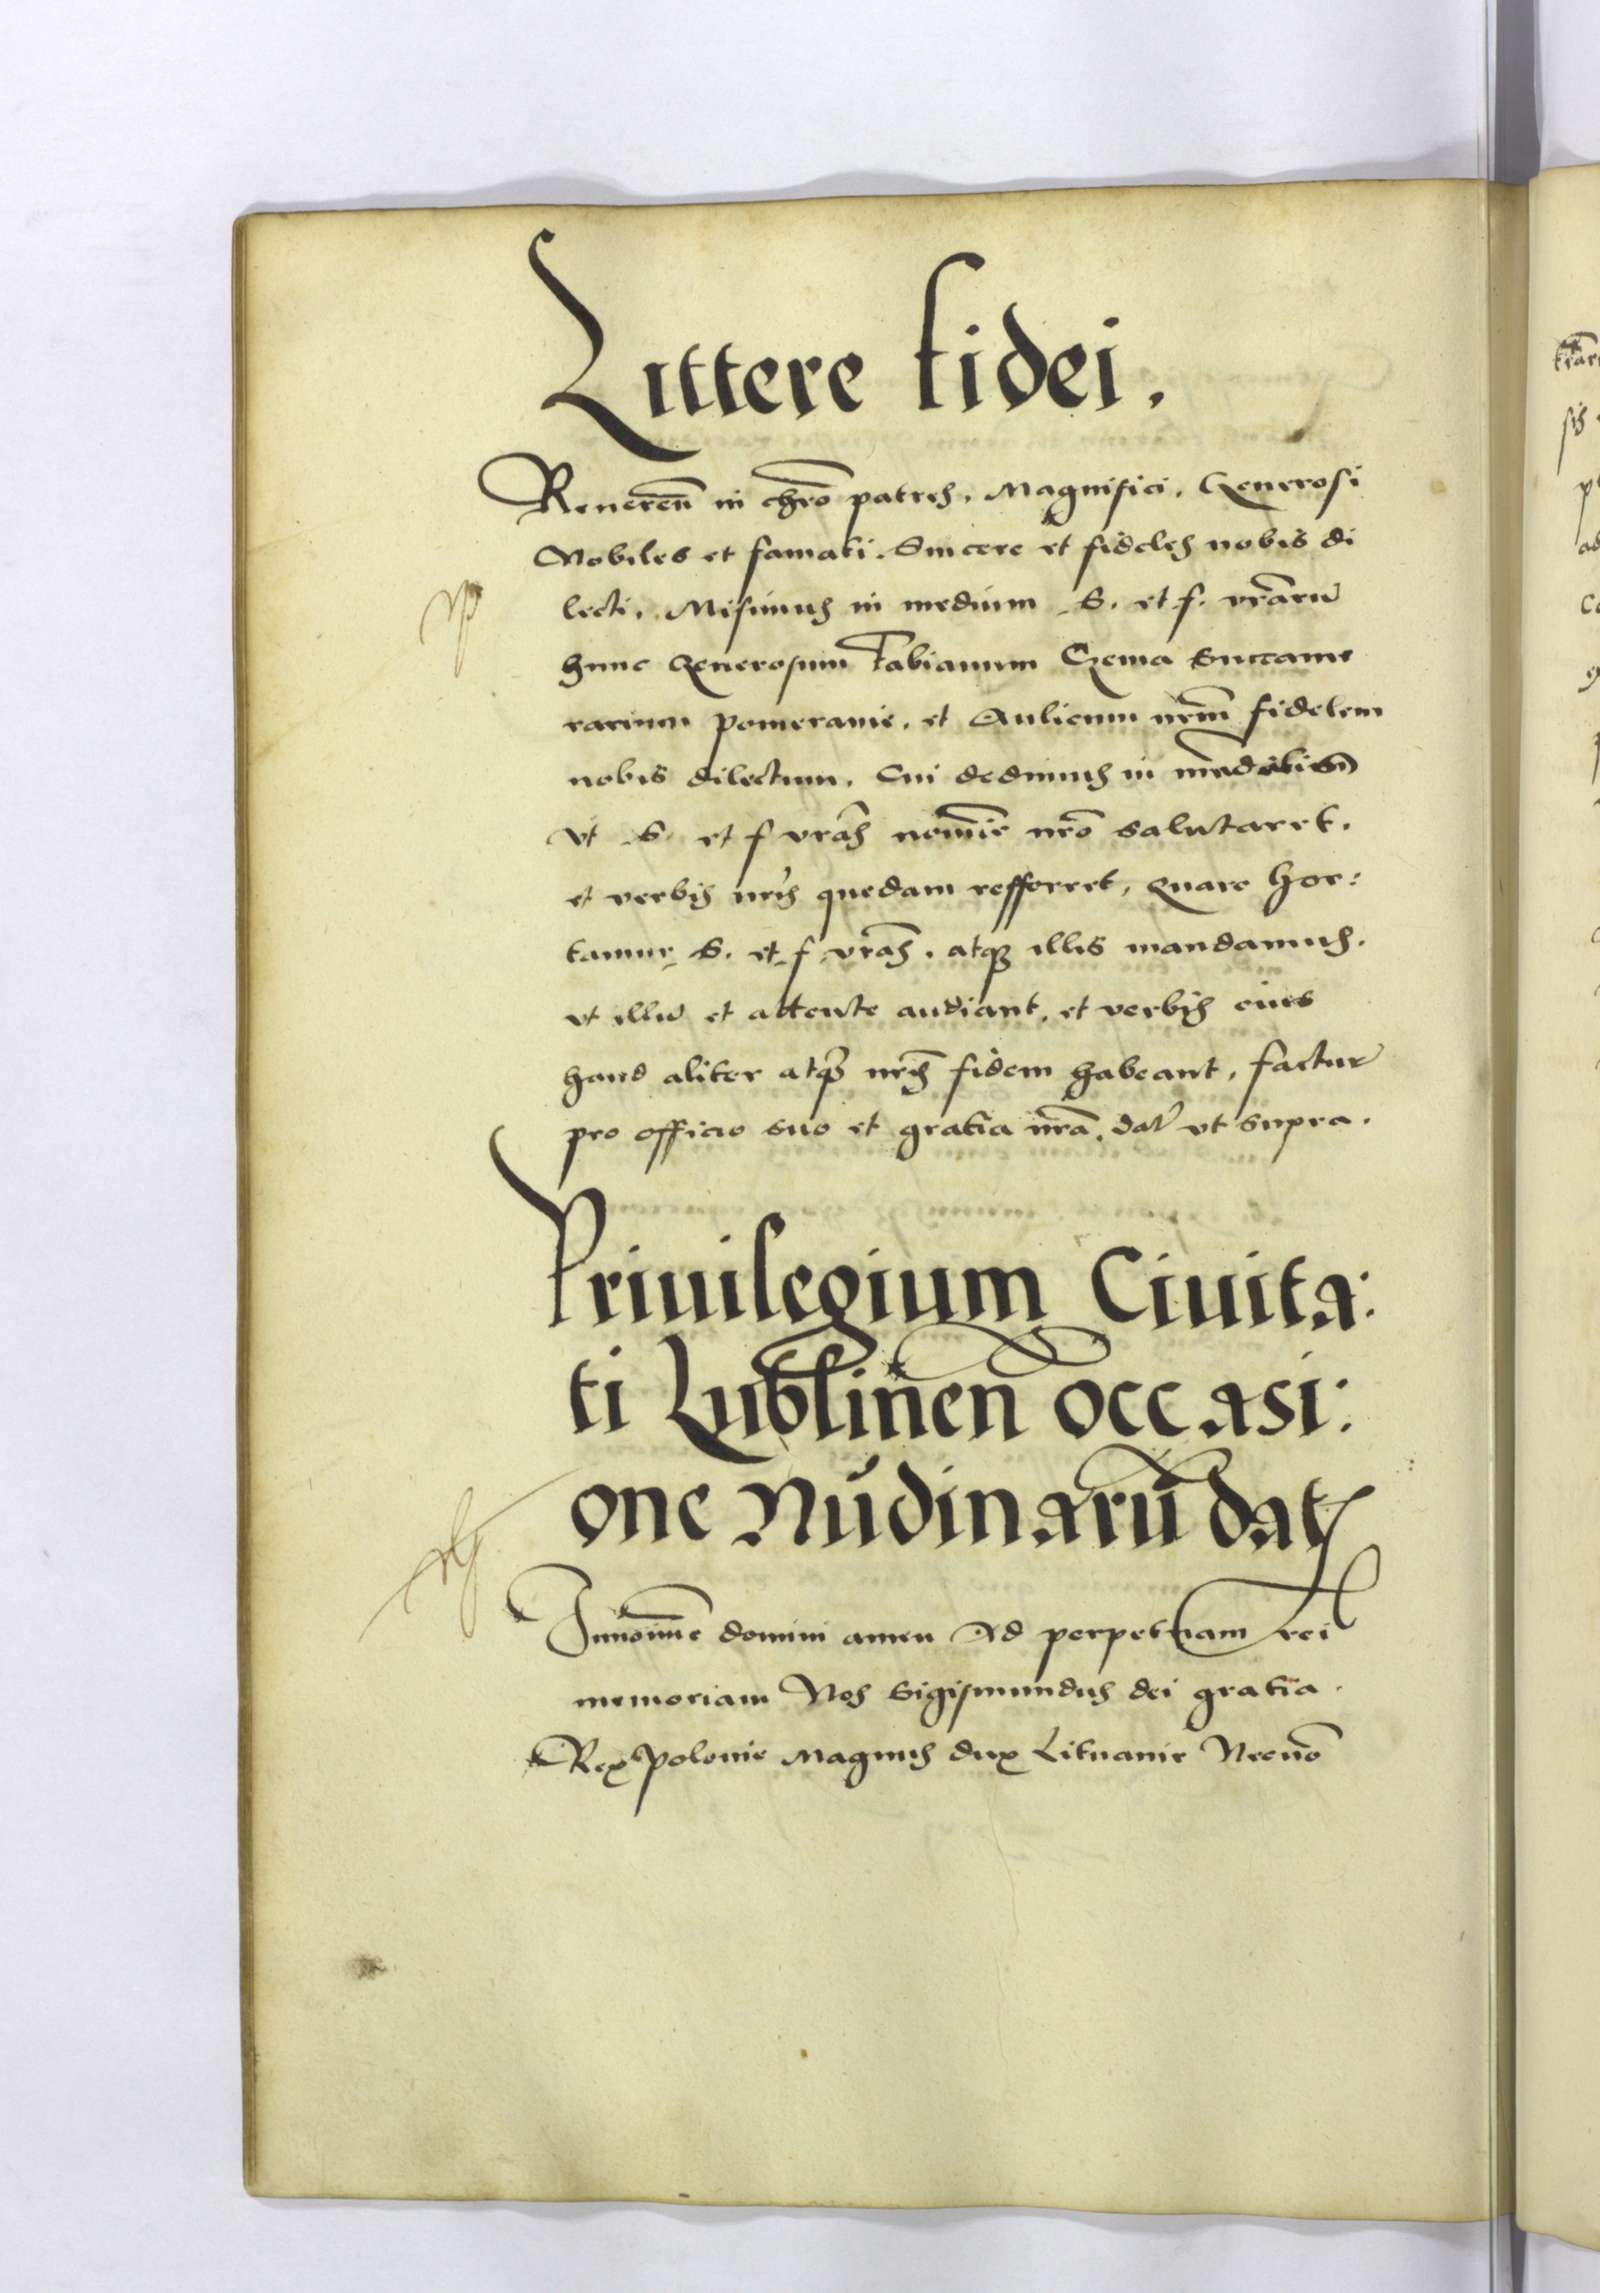 Littere fidei.
Reueren̄ in chr̄o patres. Magnifici. Generosi
Nobiles et famati. Sincere et fideles nobis di
lecti. Misimus in medium S. et f. vr̄arū
hunc Generosum Fabianum Czema Succame
rarium pomeranie. et Aulicum nr̄m fidelem
nobis dilectum. Cui dedimus in
vt S. et f vr̄as nomīe nr̄o salutaret.
et verbis nr̄is quedam refferret, Quare hor:
tamur S. et f vr̄as. atqȝ illis mandamus.
vt illū et attente audiant, et verbis eius
haud aliter atqȝ nr̄is fidem habeant, factur̄
pro officio suo et gratia nr̄a. dat̄ vt supra.
Priuilegium Ciuita:
ti Lublinen̄ occasi:
one Nūdinarū dat
In noīmē domini amen Ad perpetuam rei
memoriam Nos Sigismundus dei gratia.
Rex polonie Magnus dux Lituanie Necnō